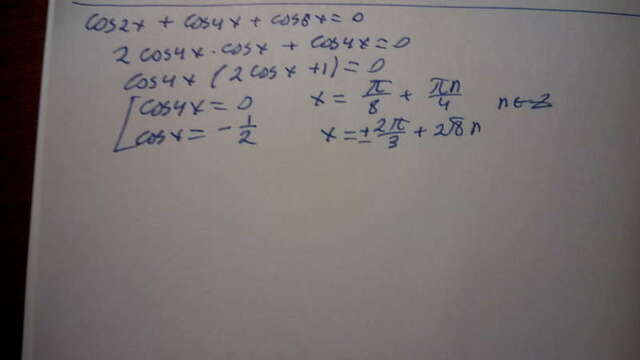 cos2x + cos4x + cos6x = 0
2 cos4x · cosx + cos4x = 0
cos4x (2cosx + 1) = 0
cos4x = 0 x = π/8 + πn/4 n ∈ Z
cosx = - 1/2 x = ± 2π/3 + 2πn